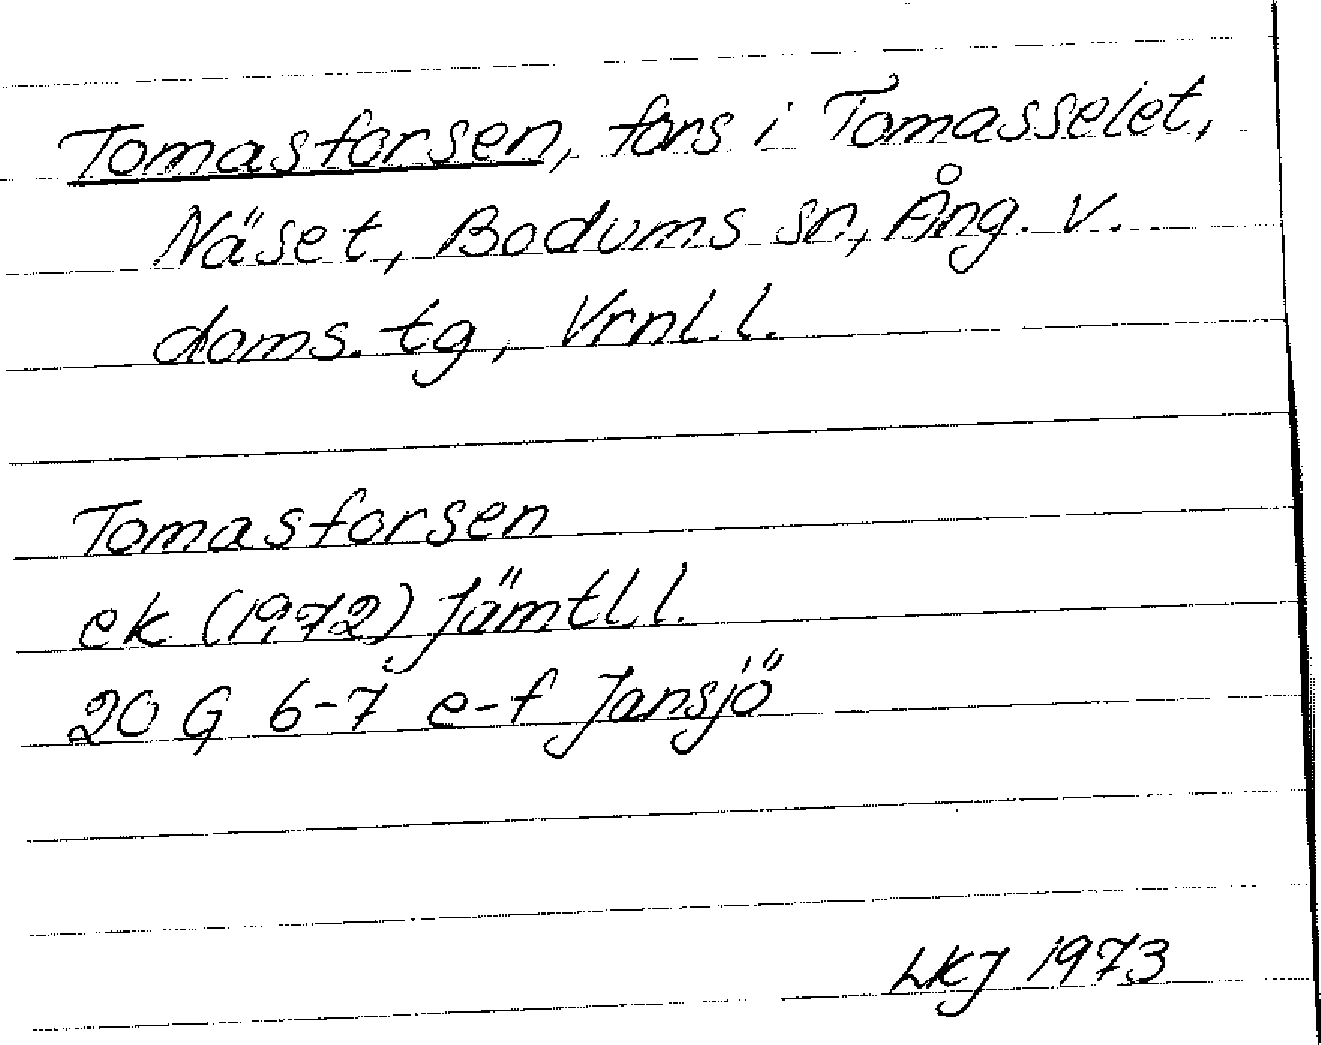 Tomasforsen, fors i Tomasselet,
Näset, Bodums sn, Ång. v.
doms. tg, Vrnl. l.
Tomasforsen
ek (1972) Jämtl l.
20 G 6-7 e-f Jansjö
LKJ 1973